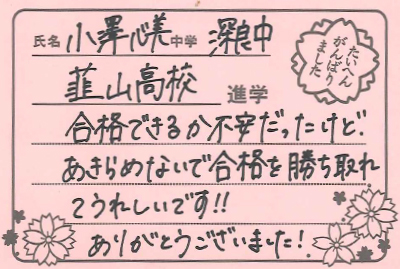 氏名 小澤心美 中学 深良中
韮山高校 進学
たいへん
がんばり
ました
合格できるか不安だったけど
あきらめないで合格を勝ち取れ
てうれしいです!!
ありがとうございました!